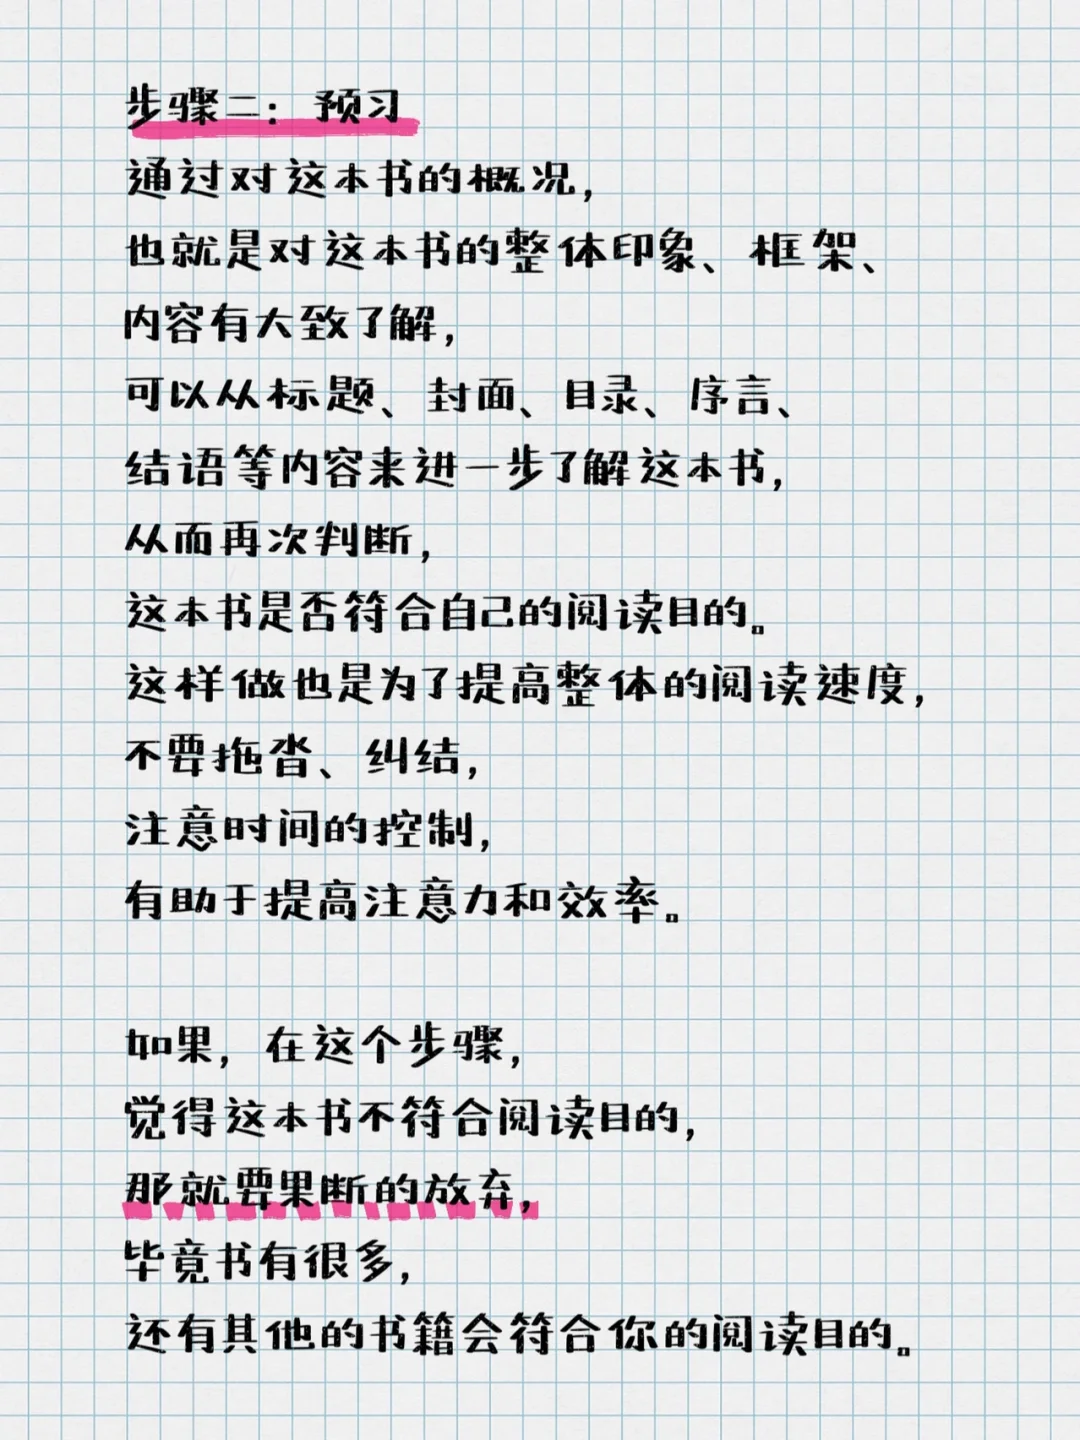 步骤二：预习
通过对这本书的概况，
也就是对这本书的整体印象、框架、
内容有大致了解，
可以从标题、封面、目录、序言、
结语等内容来进一步了解这本书，
从而再次判断，
这本书是否符合自己的阅读目的。
这样做也是为了提高整体的阅读速度，
不要拖沓、纠结，
注意时间的控制，
有助于提高注意力和效率。
如果，在这个步骤，
觉得这本书不符合阅读目的，
那就要果断的放弃，
毕竟书有很多，
还有其他的书籍会符合你的阅读目的。